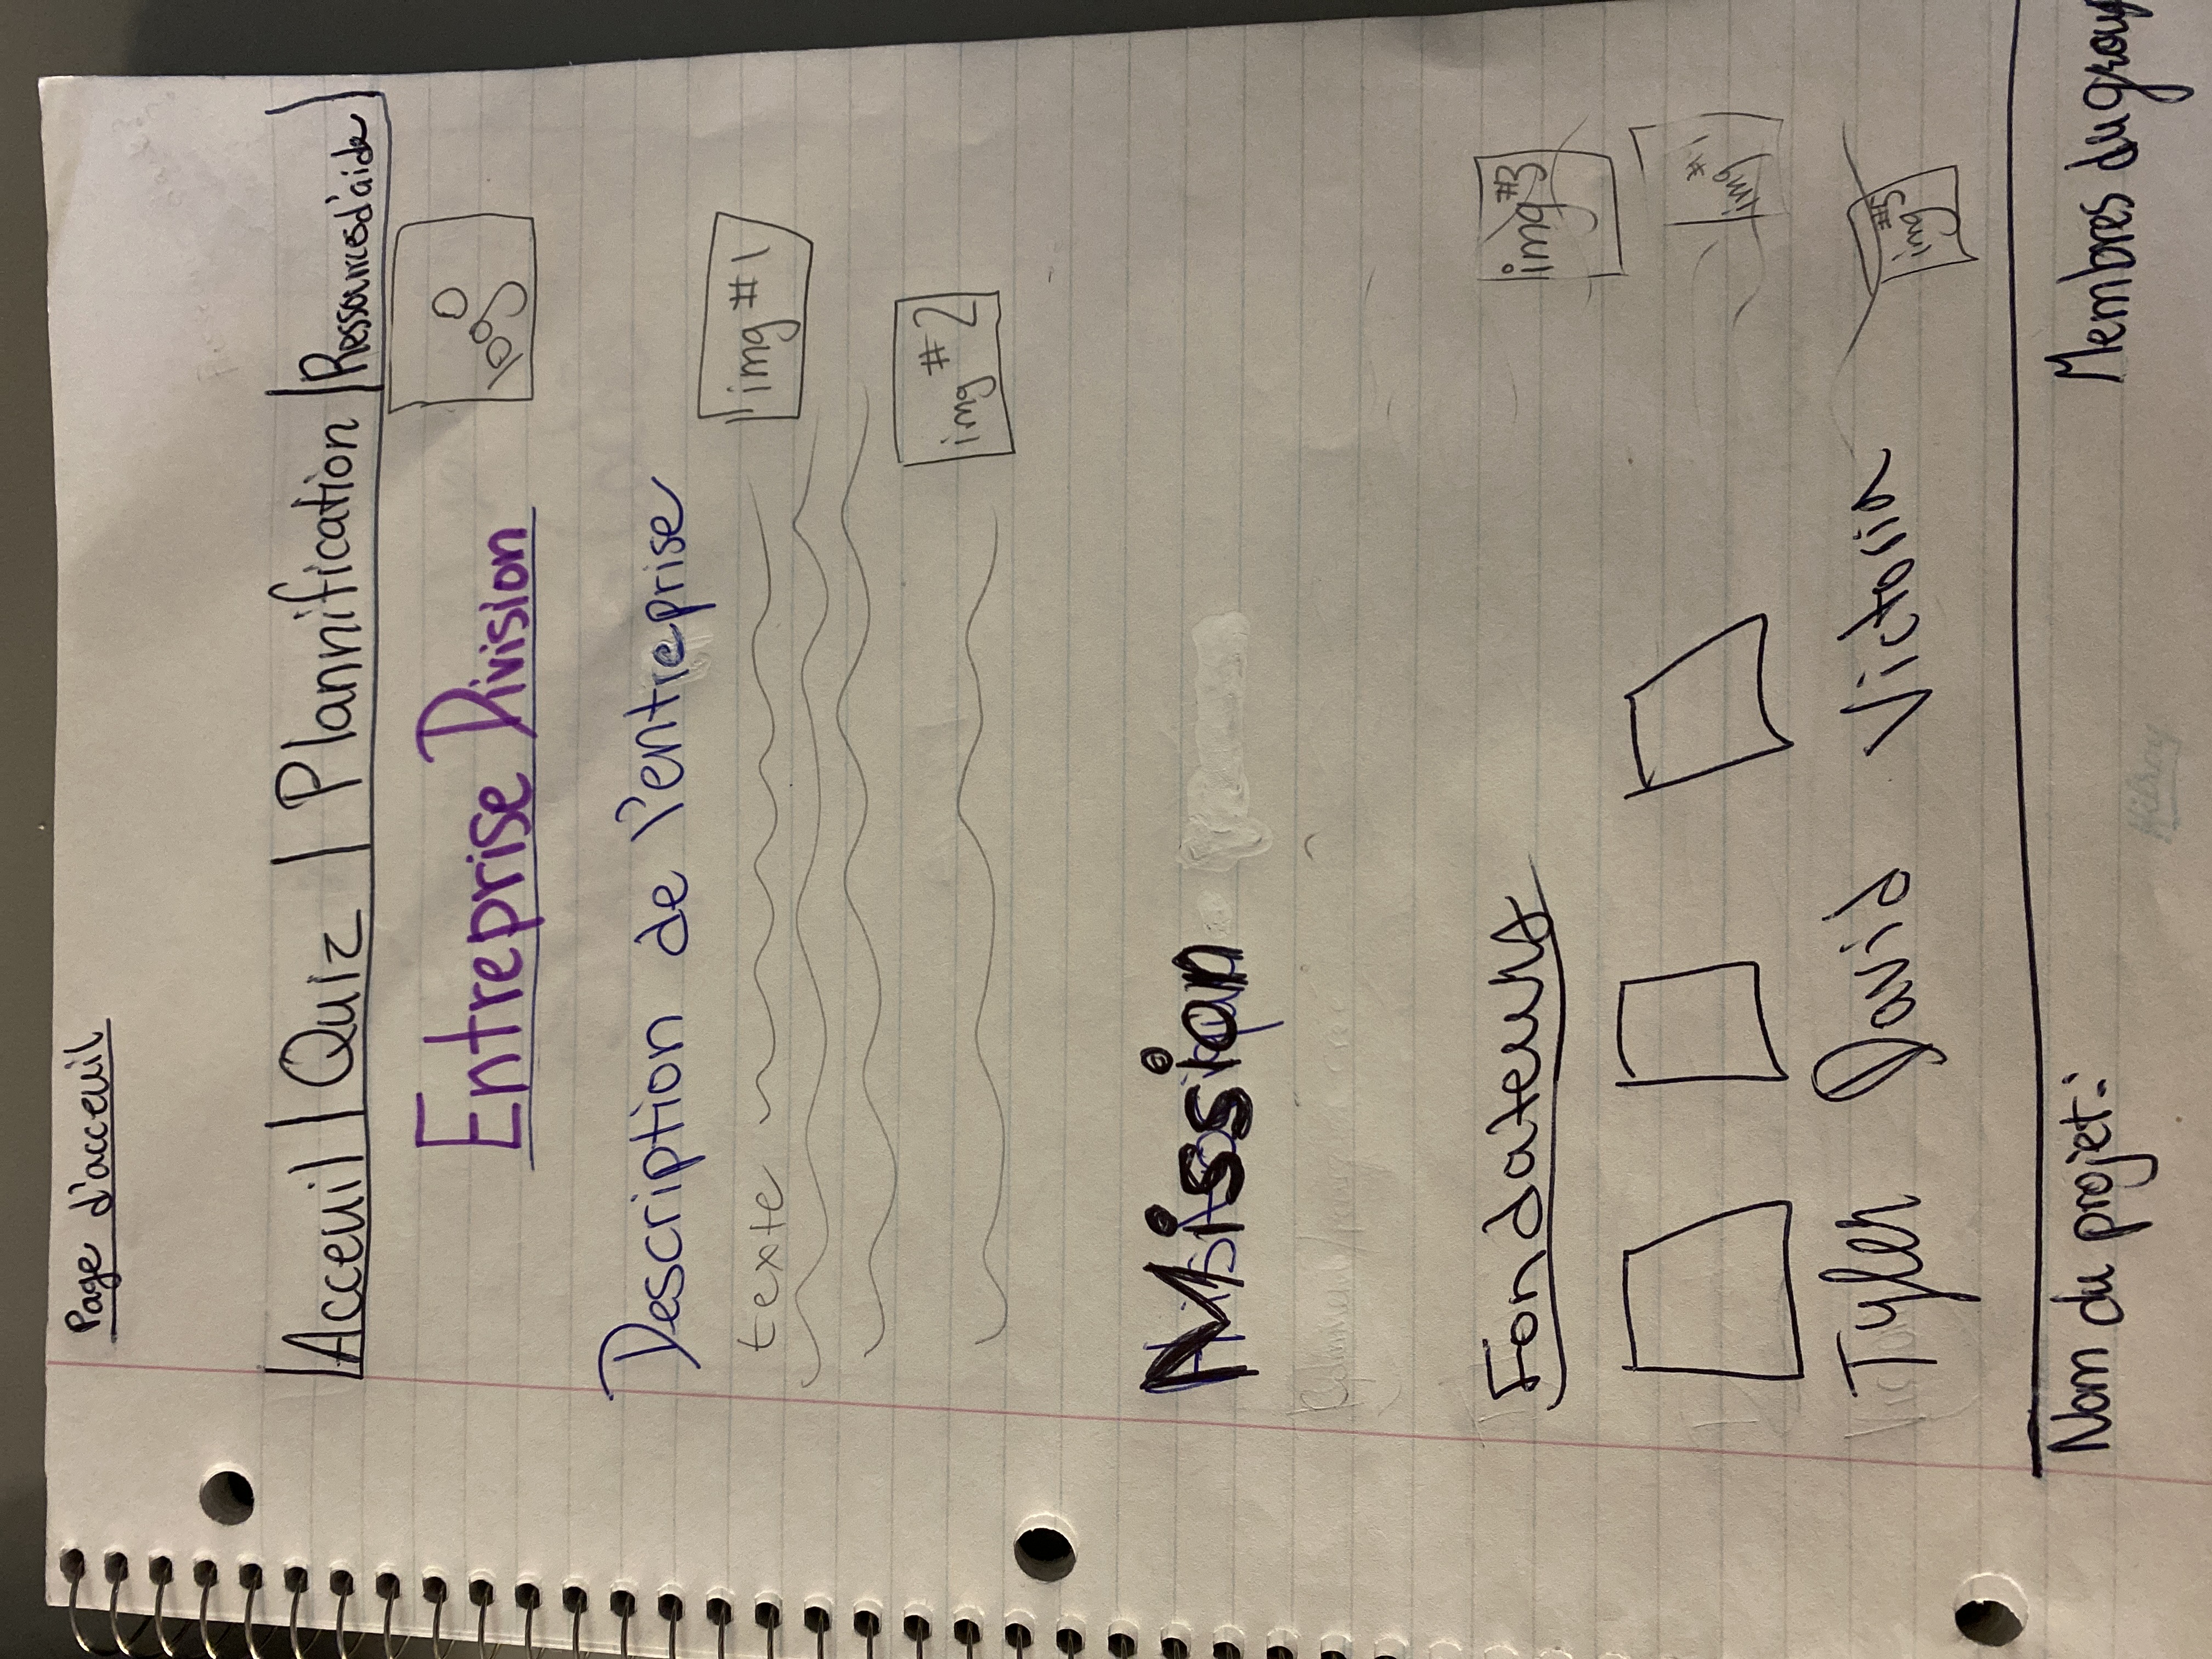 Page d'acceuil
|Acceuil | Quiz | Plannification | Ressources d'aide|
Entreprise Division
logo
Description de l'entreprise
texte
img #1
img #2
Mission
Fondateurs
img #3
img #
Tyler David Victoria
img #5
Nom du projet:
Membres du group
Hilroy